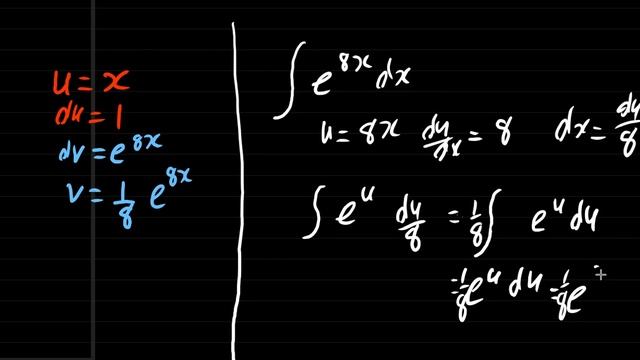 u = x
du = 1
dv = e^{8x}
v = 1/8 e^{8x}
∫ e^{8x} dx
u = 8x du/dx = 8 dx = du/8
∫ e^u du/8 = 1/8 ∫ e^u du
= 1/8 e^u du = 1/8 e